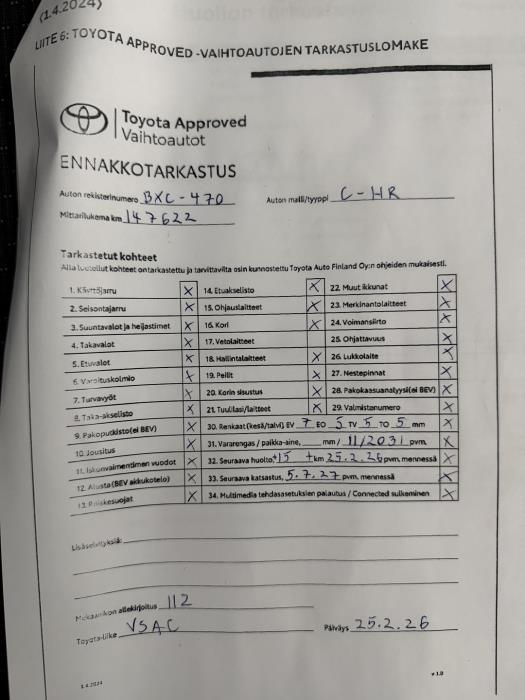 (1.4.2024)
LIITE 6: TOYOTA APPROVED -VAIHTOAUTOJEN TARKASTUSLOMAKE
Toyota Approved
Vaihtoautot
ENNAKKOTARKASTUS
Auton rekisterinumero BXC-470 Auton malli/tyyppi C-HR
Mittarilukema km 147622
Tarkastetut kohteet
Alla luetellut kohteet on tarkastettu ja tarvittavilta osin kunnostettu Toyota Auto Finland Oy:n ohjeiden mukaisesti.
1. Käyttöjarru X 14. Etuakselisto X 22. Muut ikkunat X
2. Seisontajarru X 15. Ohjauslaitteet X 23. Merkinantolaitteet X
3. Suuntavalot ja heijastimet X 16. Kori X 24. Voimansiirto X
4. Takavalot X 17. Vetolaitteet 25. Ohjattavuus X
5. Etuvalot X 18. Hallintalaitteet X 26. Lukkolaite X
6. Varoituskolmio X 19. Peilit X 27. Nestepinnat X
7. Turvavyöt X 20. Korin sisustus X 28. Pakokaasuanalyysi(ei BEV) X
8. Taka-akselisto X 21. Tuulilasi/laitteet X 29. Valmistenumero X
9. Pakoputkisto(ei BEV) X 30. Renkaat (kesä/talvi) EV 7 EO 5 TV 5 TO 5 mm X
10. Jousitus X 31. Vararengas / paikka-aine, mm/ 11/2031 pvm. X
11. Iskunvaimentimen vuodot X 32. Seuraava huolto, +15 tkm 25.2.26 pvm. mennessä X
12. Alusta(BEV akkukotelo) X 33. Seuraava katsastus, 5.7.27 pvm. mennessä X
13. Pölykesuojat X 34. Multimedia tehdasasetuksien palautus / Connected sulkeminen X
Lisäselvityksiä:
Mekaanikon allekirjoitus 112
Toyota-liike VSAC Päiväys 25.2.26
1.4.2024 v 1.0